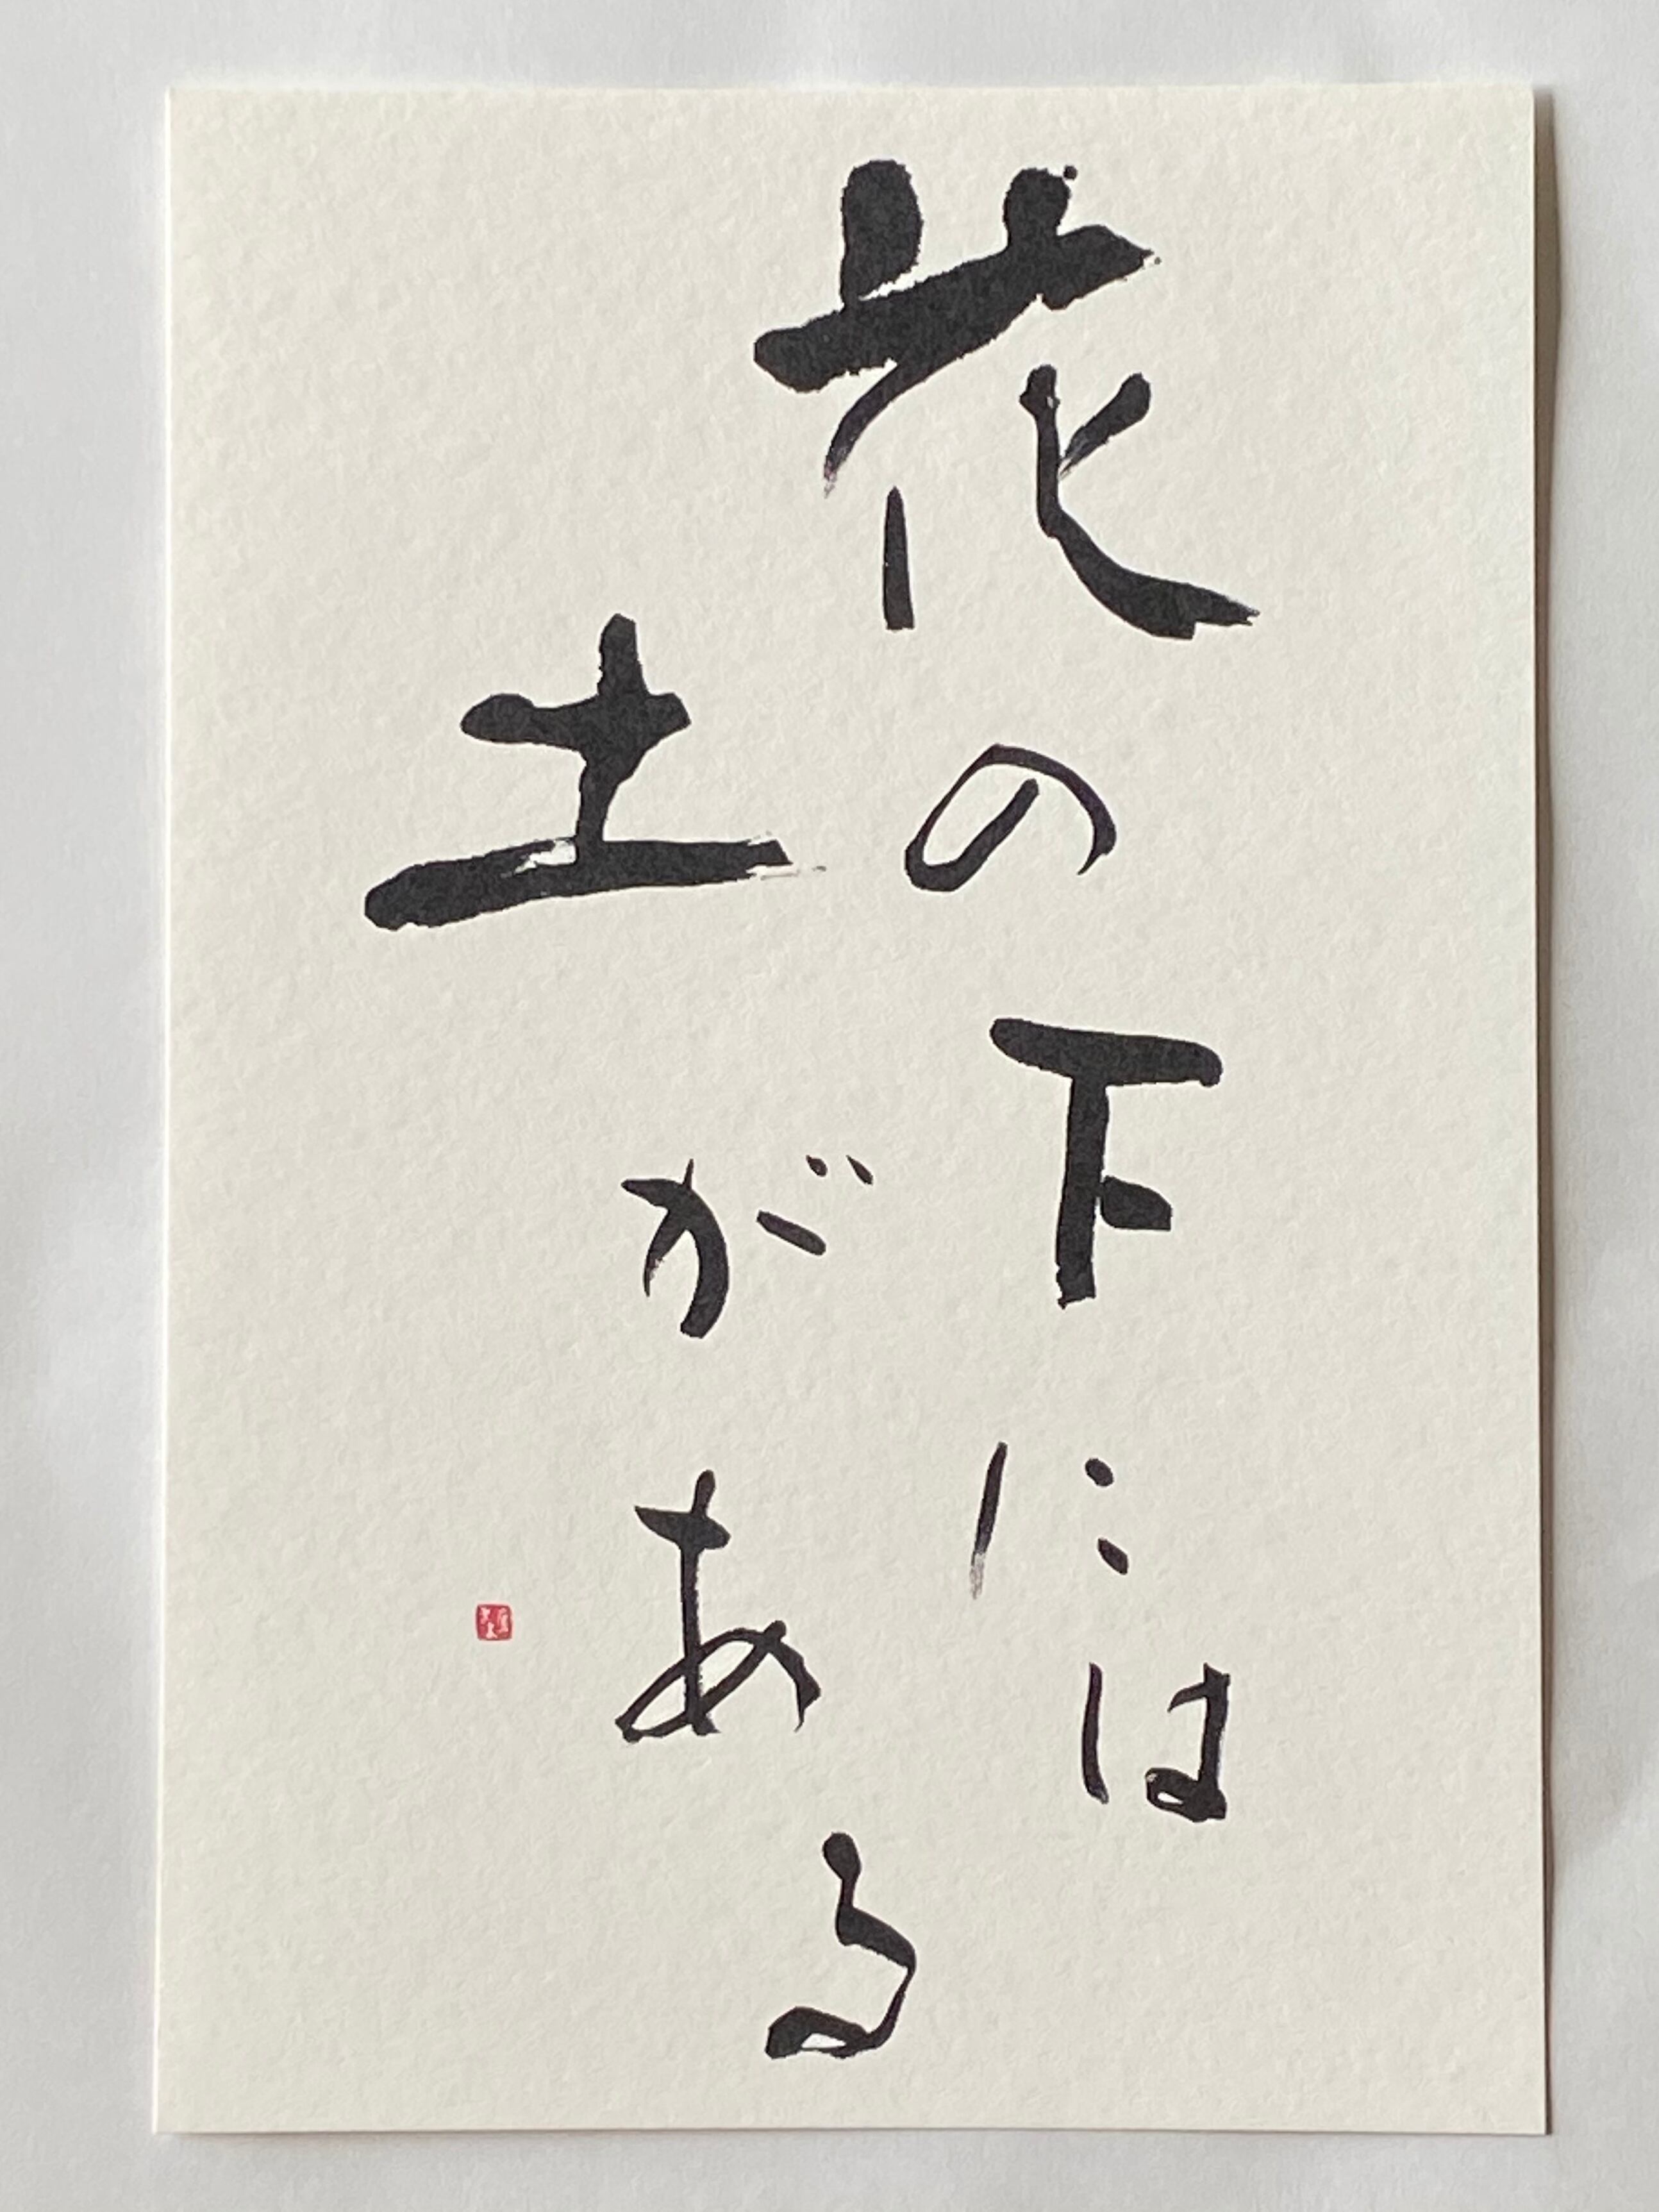 花の下には
土がある